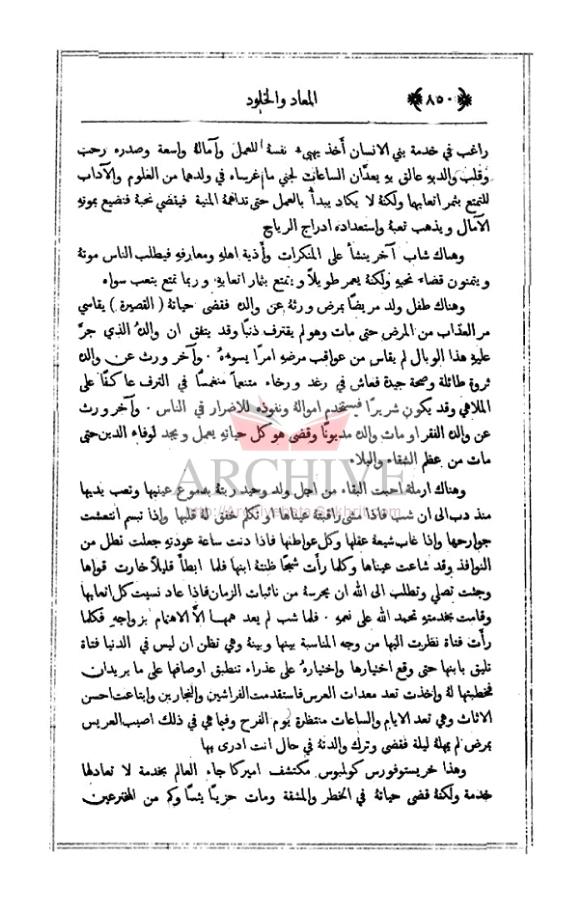 ﴿٨٥٠﴾ المعاد والخلود
راغب في خدمة بني الانسان أخذ يهيء نفسهُ للعمل وآمالهُ واسعة وصدره رحب
وقلب والديو عالق بو يعدّان الساعات لجني ما غرساه في ولدهما من العلوم والآداب
للتمتع بثمر اتعابهما ولكنهُ لا يكاد يبدأُ بالعمل حتى تداهمهُ المنية فيقضي نحبهُ فتضيع بموتهِ
الآمال ويذهب تعبهُ واستعداده ادراج الرياح
وهناك شاب آخر ينشأ على المنكرات وأذية اهلهِ ومعارفهِ فيطلب الناس موتهُ
ويتمنون قضاء نحبهِ ولكنهُ يعمر طويلاً ويتمتع بثمار اتعابهِ وربما تمتع بتعب سواه
وهناك طفل ولد مريضًا بمرض ورثهُ عن والده فقضى حياتهُ (القصيرة) يقاسي
مر العذاب من المرض حتى مات وهو لم يقترف ذنبًا وقد يتفق ان والدهُ الذي جرَّ
عليهِ هذا الوبال لم يقاس من عواقب مرضهِ امرًا يسوءهُ . وآخر ورث عن والده
ثروة طائلة وصحة جيدة فعاش في رغد ورخاء متنعماً منغمسًا في الترف عاكفًا على
الملاهي وقد يكون شريرًا فيستخدم اموالهُ ونفوذه للاضرار في الناس . وآخر ورث
عن والده الفقر او مات والده مديونًا وقضى هو كل حياتهِ يعمل ويجد لوفاء الدين حتى
مات من عظم الشقاء والبلاء
وهناك ارملة احبت البقاء من اجل ولد وحيد ربتهُ بدموع عينيها وتعب يديها
منذ دب الى ان شب فاذا مشى راقبتهُ عيناها او تكلم خفق لهُ قلبها واذا تبسم انتعشت
جوارحها وإذا غاب شيعهُ عقلها وكل عواطفها فاذا دنت ساعة عودتهِ جعلت تطل من
النوافذ وقد شاعت عيناها وكلما رأت شبحًا ظنتهُ ابنها فلما ابطأ قليلاً خارت قواها
وجثت تصلي وتطلب الى الله ان يحرسهُ من نائبات الزمان فاذا عاد نسيت كل اتعابها
وقامت بخدمتهِ تحمد الله على نعمهِ . فلما شب لم يعد همها الاَّ الاهتمام بزواجهِ فكلما
رأت فتاة نظرت اليها من وجه المناسبة بينها وبينهُ وهي تظن ان ليس في الدنيا فتاة
تليق بابنها حتى وقع اختيارها واختيارهُ على عذراء تنطبق اوصافها على ما يريدان
فخطبتها لهُ واخذت تعد معدات العرس فاستقدمت الفراشين والنجارين وابتاعت احسن
الاثاث وهي تعد الايام والساعات منتظرة يوم الفرح وفيما هي في ذلك اصيب العريس
بمرض لم يمهلهُ ليلة فقضى وترك والدتهُ في حال انت ادرى بها
وهذا خريستوفورس كولمبوس مكتشف اميركا جاء العالم بخدمة لا تعادلها
خدمة ولكنهُ قضى حياتهُ في الخطر والمشقة ومات حزينًا يئسًا وكم من المخترعين
ARCHIVE